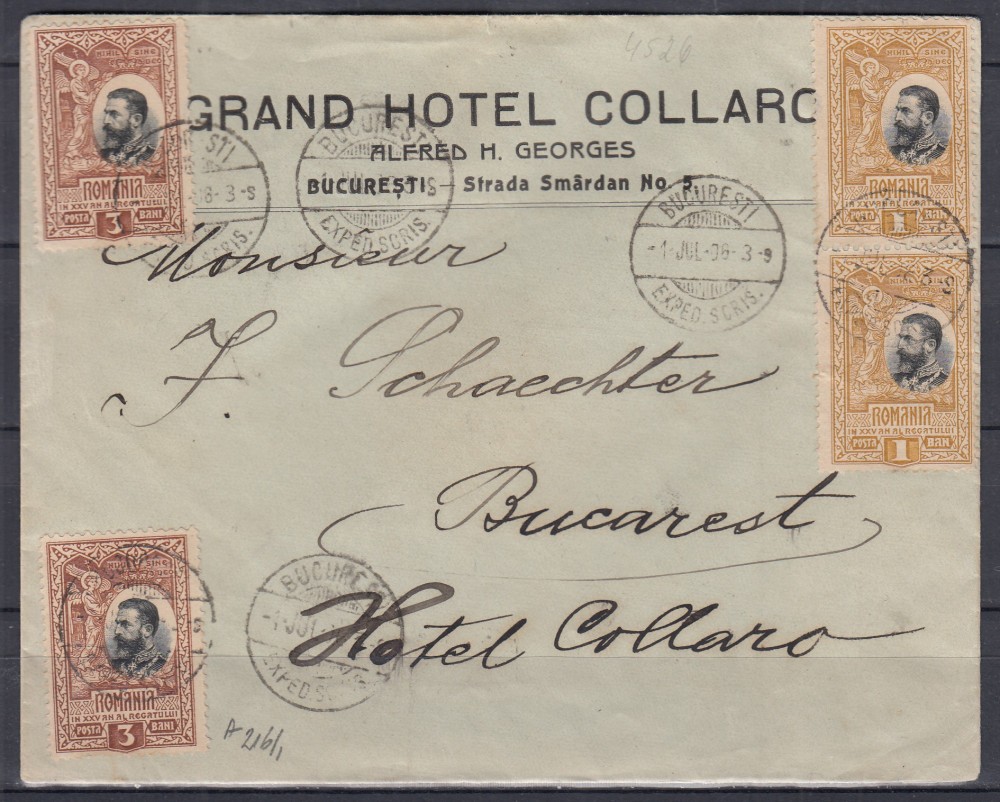 4526
GRAND HOTEL COLLARO
ALFRED H. GEORGES
BUCUREȘTI — Strada Smârdan No. 5.
NIHIL SINE DEO
ROMANIA
IN XXV AN AL REGATULUI
POSTA 3 BANI
NIHIL SINE DEO
ROMANIA
IN XXV AN AL REGATULUI
POSTA 1 BAN
ROMANIA
IN XXV AN AL REGATULUI
POSTA 1 BAN
BUCURESTI
EXPED. SCRIS.
BUCURESTI
-1 JUL-06-3-S
EXPED. SCRIS.
Monsieur
J. Schaechter
Bucarest
Hotel Collaro
NIHIL SINE DEO
ROMANIA
IN XXV AN AL REGATULUI
POSTA 3 BANI
BUCURESTI
EXPED. SCRIS.
A 216/1